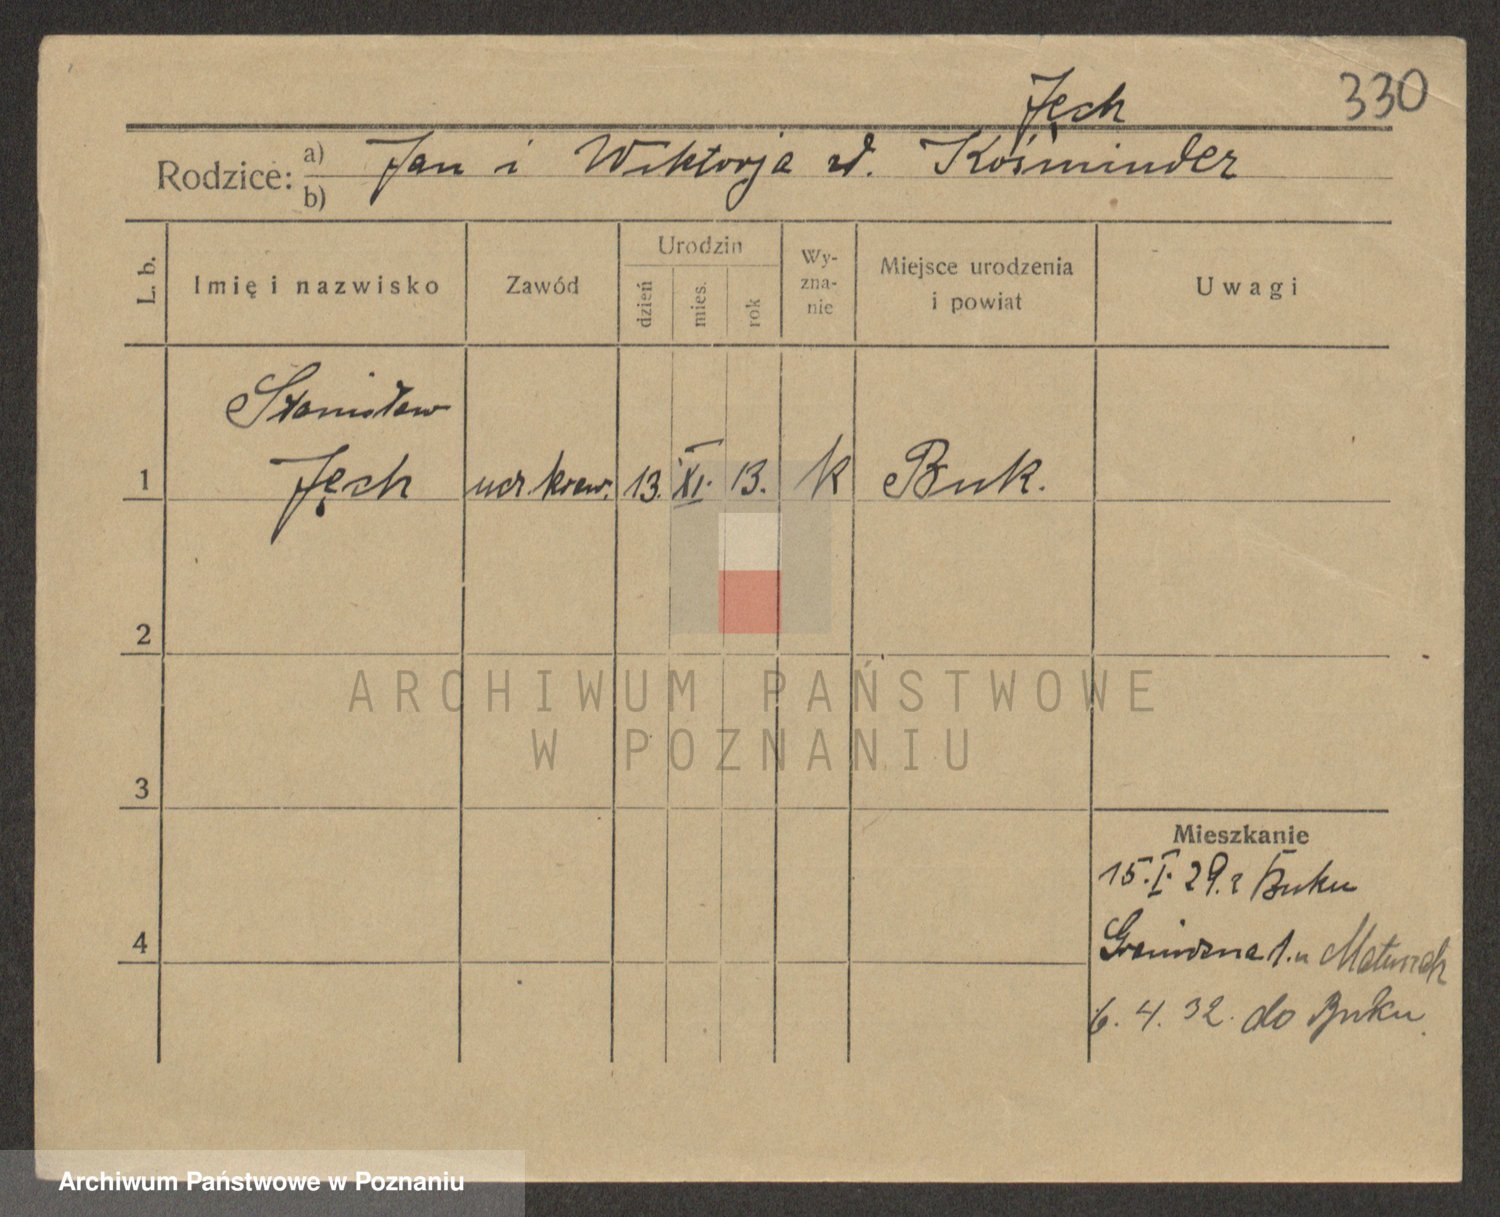 330
Jęch
Rodzice: a) b) Jan i Wiktorja zd. Kośminder
L. b.
Imię i nazwisko
Zawód
Urodzin
dzień
mies.
rok
Wy-
zna-
nie
Miejsce urodzenia
i powiat
Uwagi
Stanisław
1 Jęch ucz. kraw. 13. XI. 13. k Buk.
2
3
4
ARCHIWUM PAŃSTWOWE
W POZNANIU
Mieszkanie
15.I.29. z Buku
Graniczna 1. u
6. 4. 32. do Buku.
Archiwum Państwowe w Poznaniu